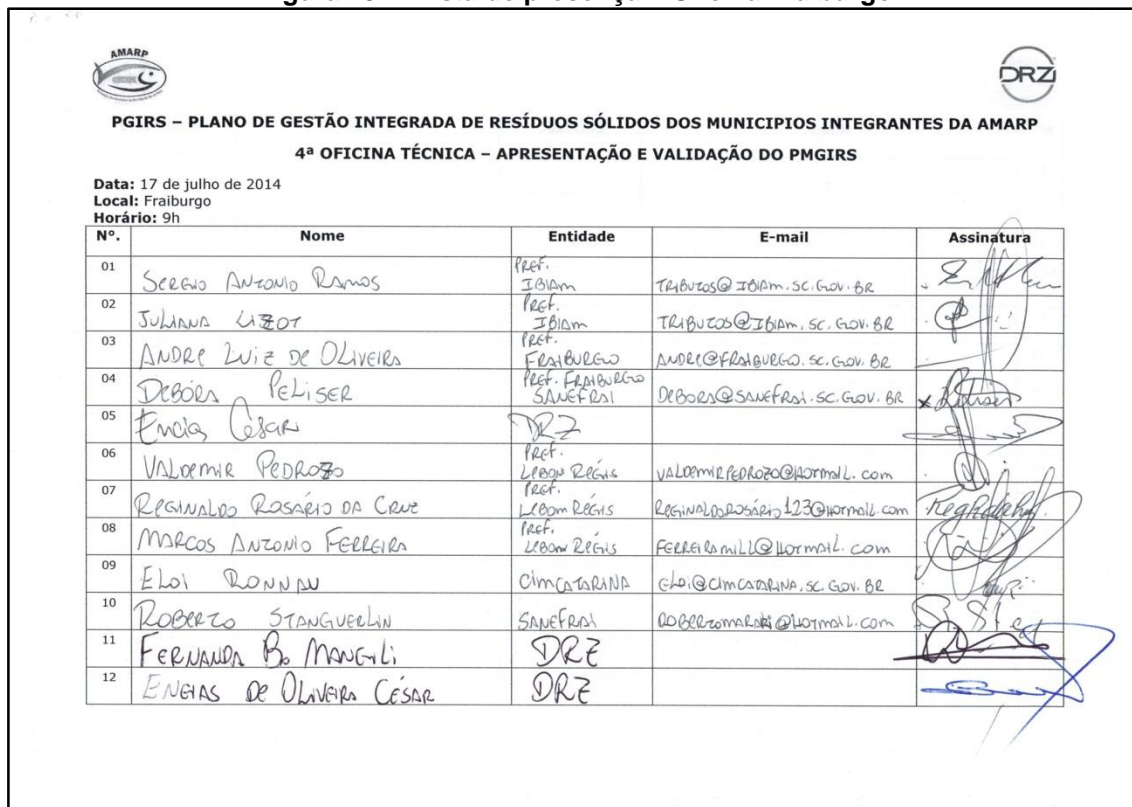 AMARP
DRZ
PGIRS – PLANO DE GESTÃO INTEGRADA DE RESÍDUOS SÓLIDOS DOS MUNICIPIOS INTEGRANTES DA AMARP
4ª OFICINA TÉCNICA – APRESENTAÇÃO E VALIDAÇÃO DO PMGIRS
Data: 17 de julho de 2014
Local: Fraiburgo
Horário: 9h
N°. Nome Entidade E-mail Assinatura
01 SERGIO ANTONIO RAMOS PREF. IBIAM TRIBUTOS@IBIAM.SC.GOV.BR
02 JULIANA LIZOT PREF. IBIAM TRIBUTOS@IBIAM.SC.GOV.BR
03 ANDRE LUIZ DE OLIVEIRA PREF. FRAIBURGO ANDRE@FRAIBURGO.SC.GOV.BR
04 DEBÓRA PELISER PREF. FRAIBURGO SANEFRAI DEBORA@SANEFRAI.SC.GOV.BR
05 César DRZ
06 VALDEMIR PEDROZO PREF. LEBON RÉGIS VALDEMIRPEDROZO@HOTMAIL.COM
07 REGINALDO ROSÁRIO DA CRUZ PREF. LEBON RÉGIS REGINALDOROSÁRIO123@HOTMAIL.COM
08 MARCOS ANTONIO FERREIRA PREF. LEBON RÉGIS FERREIRAMILL@HOTMAIL.COM
09 ELOI RONNAU CIMCATARINA ELOI@CIMCATARINA.SC.GOV.BR
10 ROBERTO STANGUERLIN SANEFRAI
11 FERNANDA B. MANGILI DRZ
12 ENEIAS DE OLIVEIRA CÉSAR DRZ